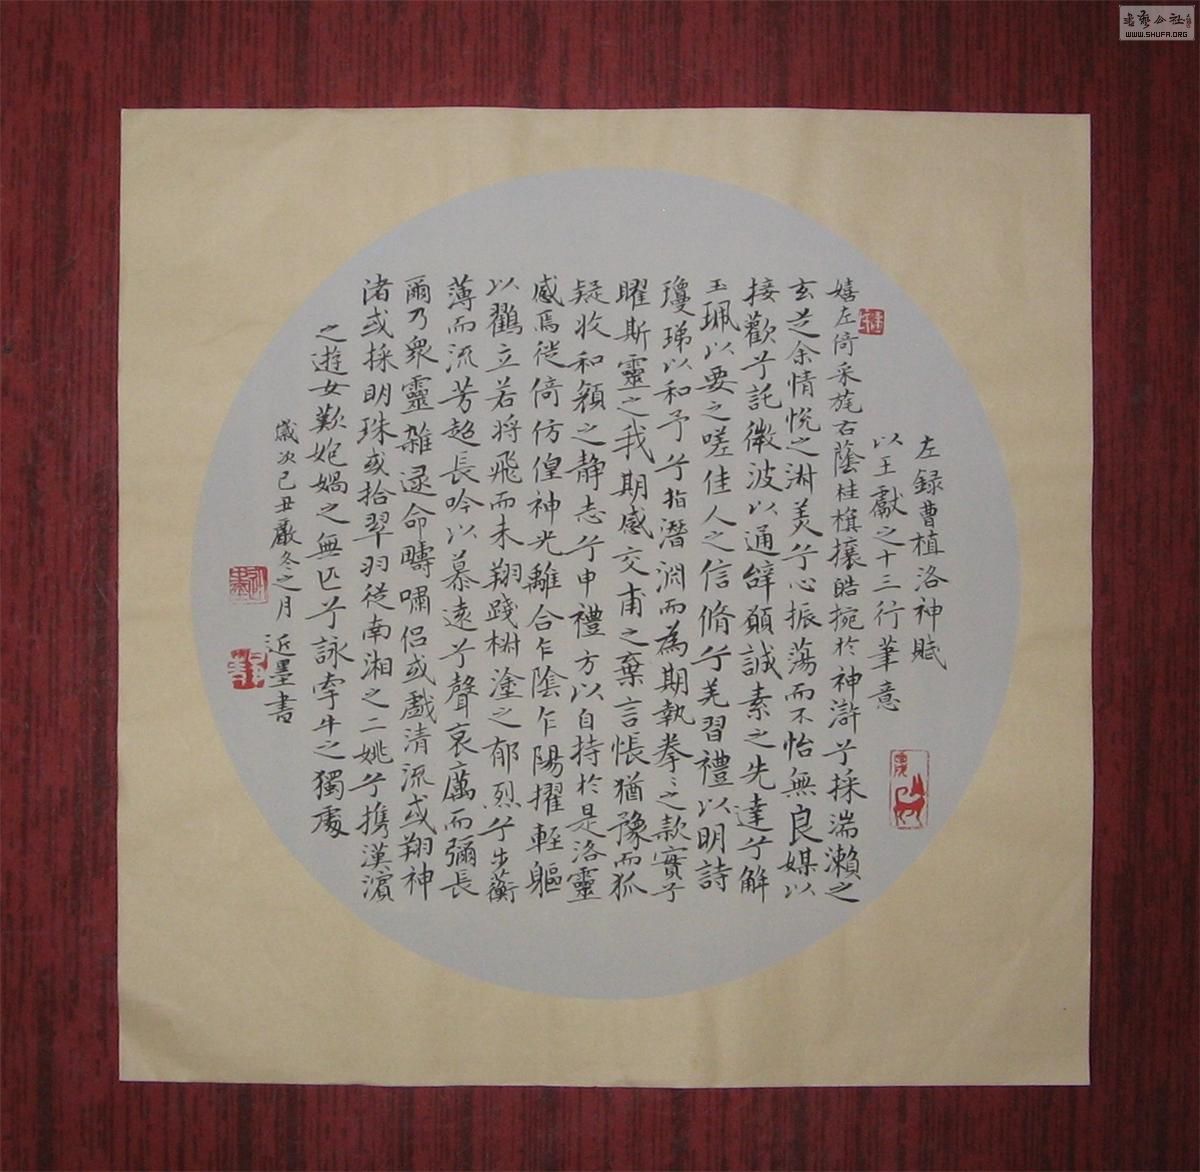 左錄曹植洛神賦
以王獻之十三行筆意
嬉左倚采旄右蔭桂旗攘皓捥於神滸兮採湍瀨之
玄芝余情悅之淑美兮心振蕩而不怡無良媒以
接歡兮託微波以通辭願誠素之先達兮解
玉珮以要之嗟佳人之信脩兮羌習禮以明詩
瓊珶以和予兮指潛淵而為期執拳〻之款實兮
曜斯靈之我期感交甫之棄言悵猶豫而狐
疑收和顏之靜志兮申禮方以自持於是洛靈
感焉徙倚仿偟神光離合乍陰乍陽擢輕軀
以鶴立若將飛而未翔踐椒塗之郁烈兮步蘅
薄而流芳超長吟以慕遠兮聲哀厲而彌長
爾乃衆靈雜遝命疇嘯侶或戲清流或翔神
渚或採明珠或拾翠羽從南湘之二姚兮攜漢濱
之遊女歎炮媧之無匹兮詠牽牛之獨處
歲次己丑嚴冬之月 近墨書
書藝公社
WWW.SHUFA.ORG